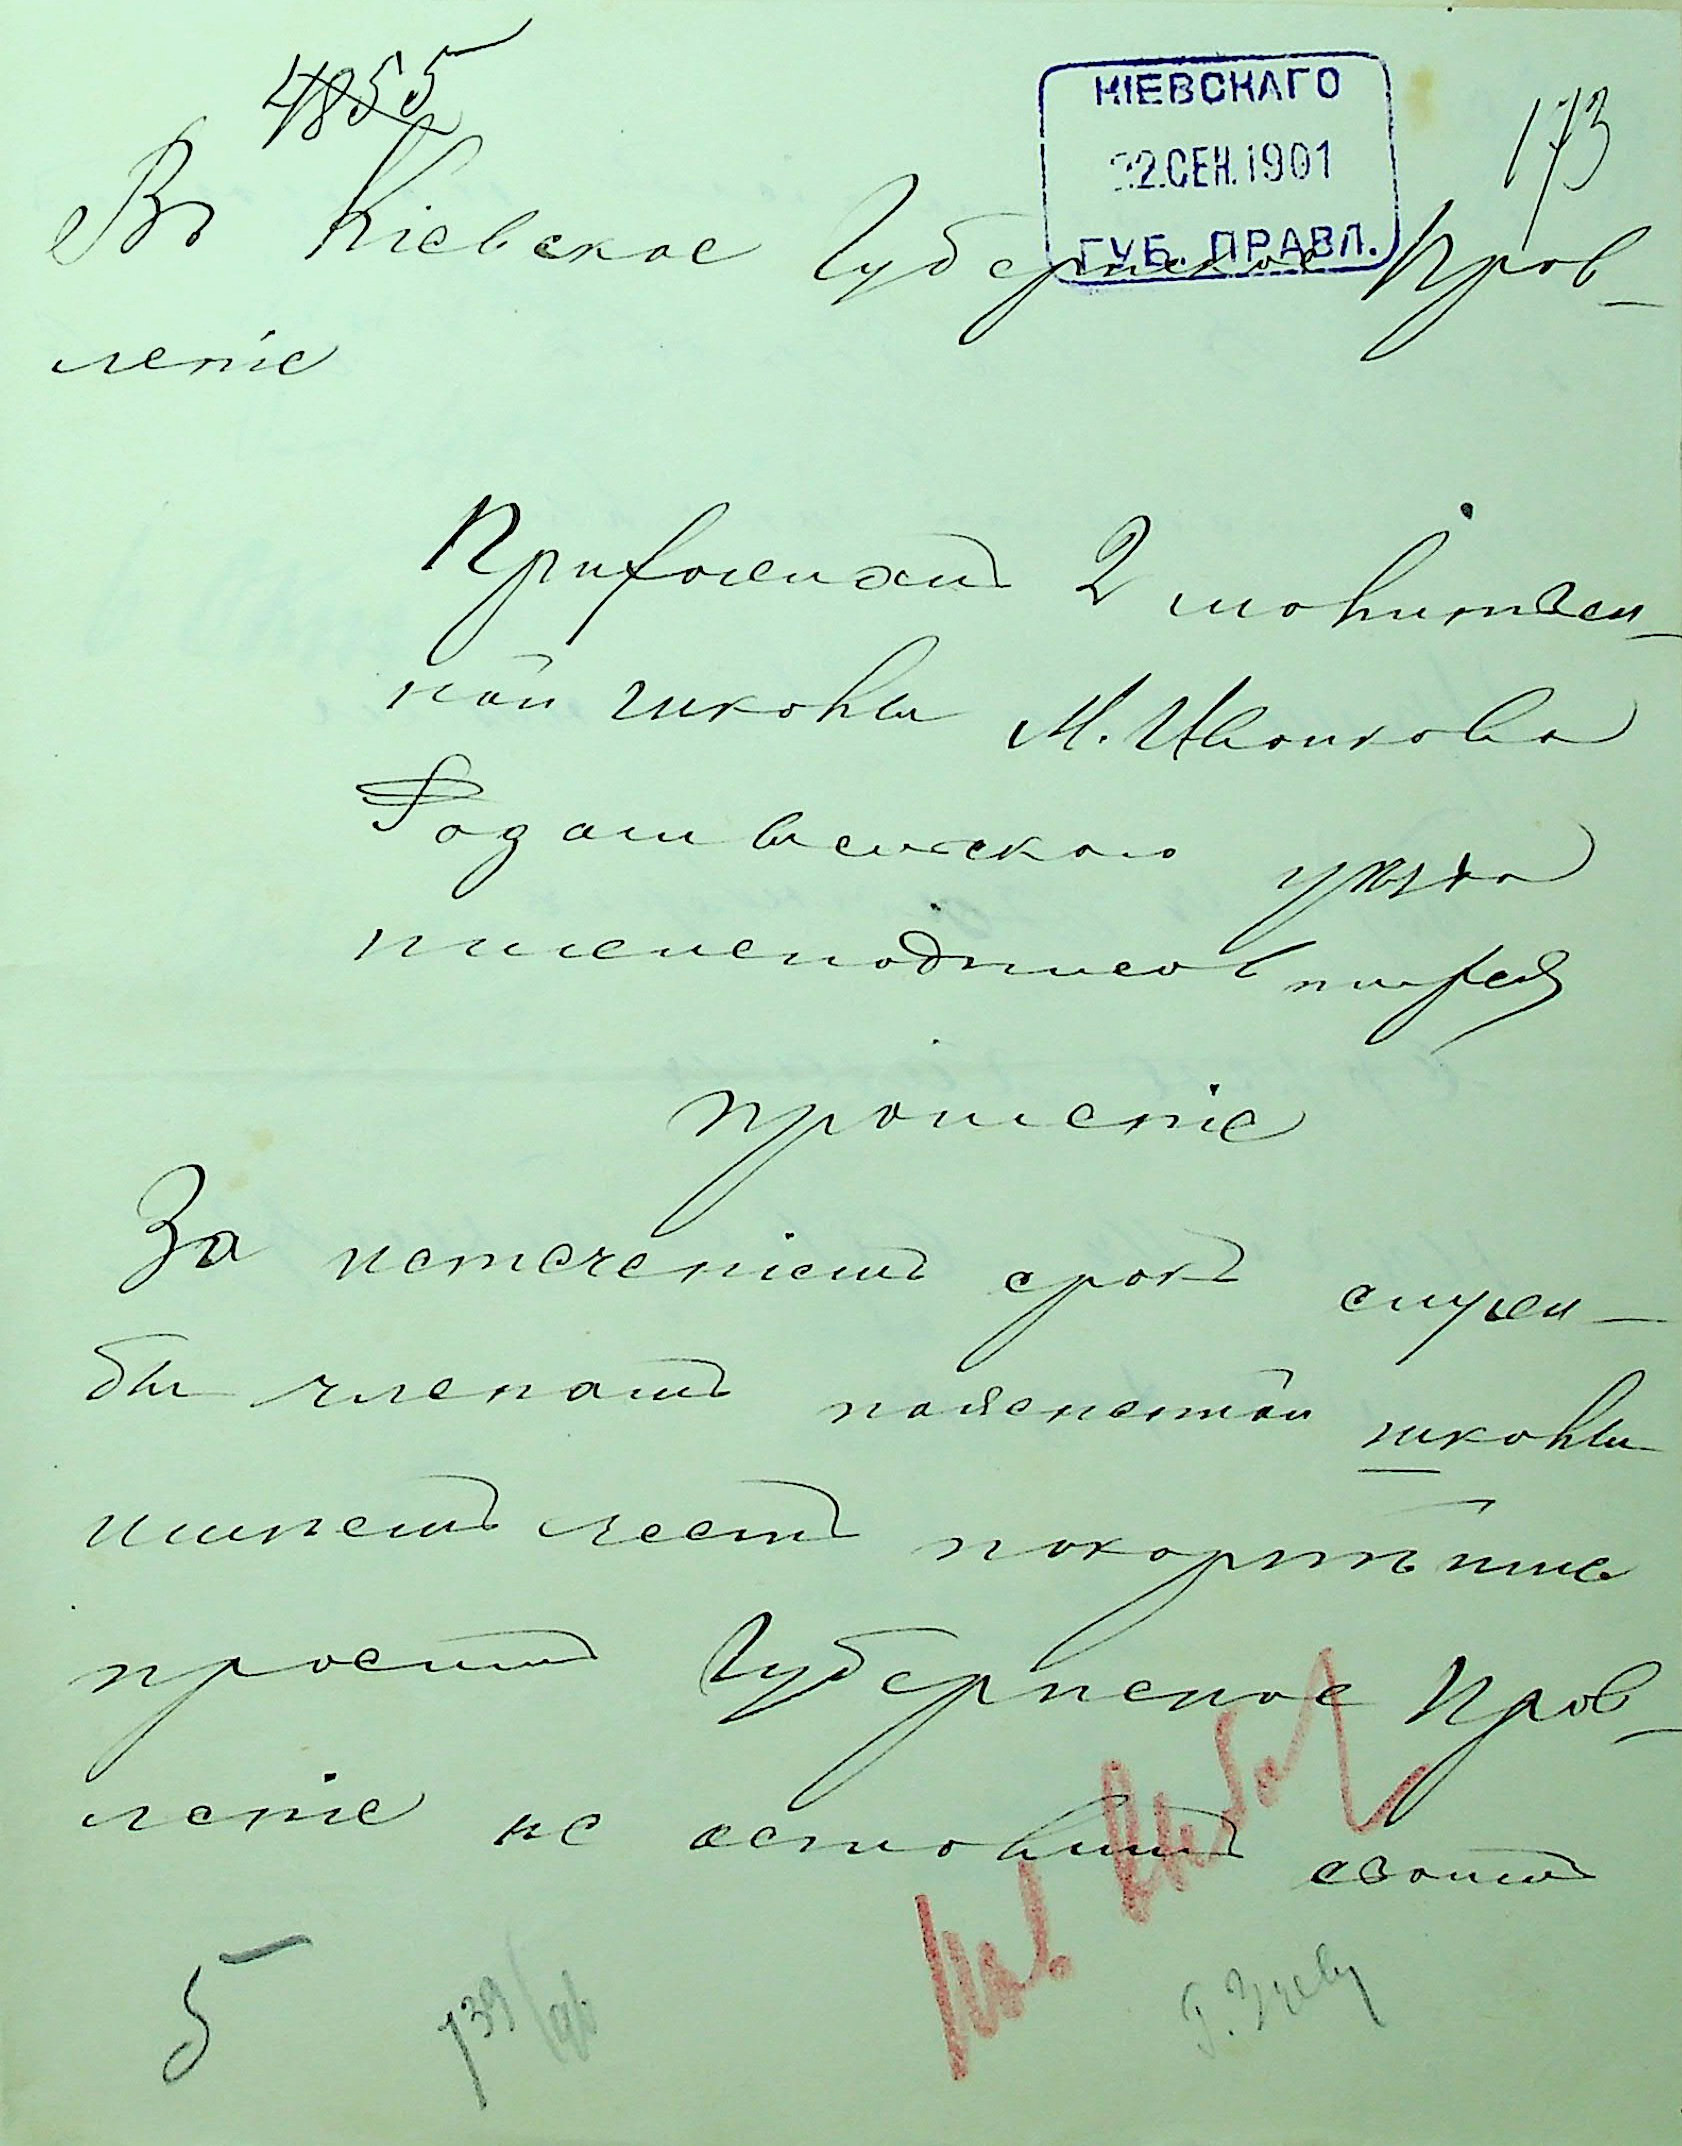 4855
КІЕВСКАГО
22.СЕН.1901
ГУБ. ПРАВЛ.
173
Въ Кіевское Губернское Прав-
леніе
Прихожанъ 2 молитвен-
ной школы М. Иванкова
Радомысльскаго уѣзда
нижеподписавшихся
прошеніе
За истеченіемъ срокъ служ-
бы членамъ
школы
имѣемъ честь покорнѣйше
просить Губернское Прав-
леніе не оставить своимъ
5